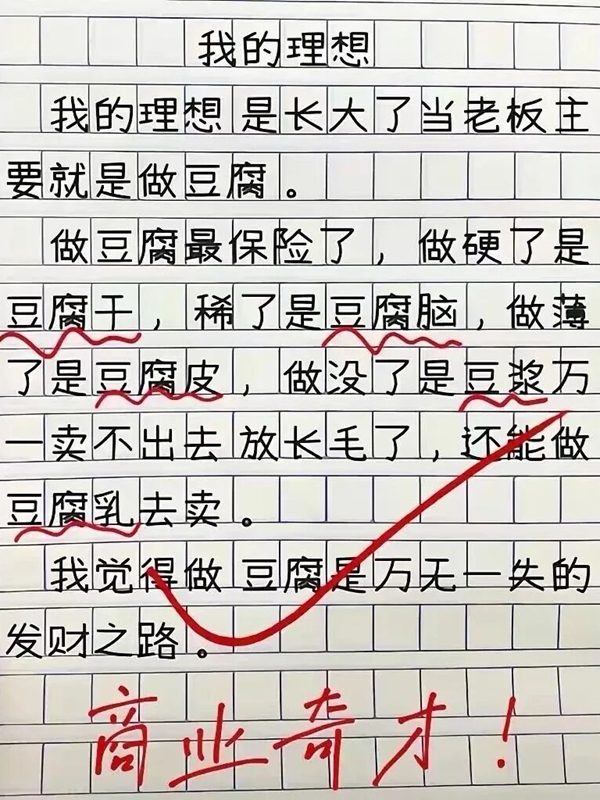 我的理想
我的理想是长大了当老板主
要就是做豆腐。
做豆腐最保险了，做硬了是
豆腐干，稀了是豆腐脑，做薄
了是豆腐皮，做没了是豆浆万
一卖不出去放长毛了，还能做
豆腐乳去卖。
我觉得做豆腐是万无一失的
发财之路。
商业奇才！